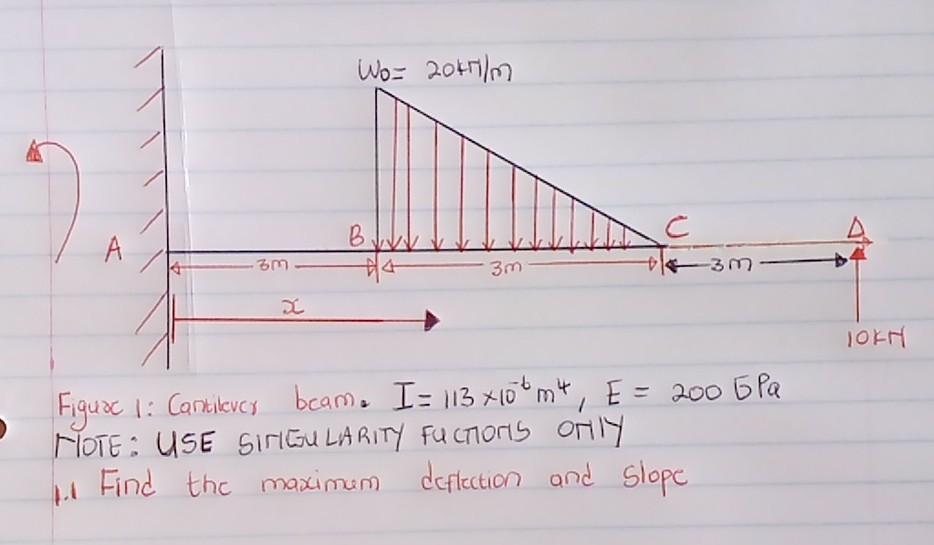 Wo= 20kN/m
A
B
C
D
3m
3m
3m
x
10kN
Figure 1: Cantilever beam. I= 113 x10⁻⁶ m⁴, E = 200 GPa
NOTE: USE SINGULARITY FUCTIONS ONLY
1.1 Find the maximum deflection and slope